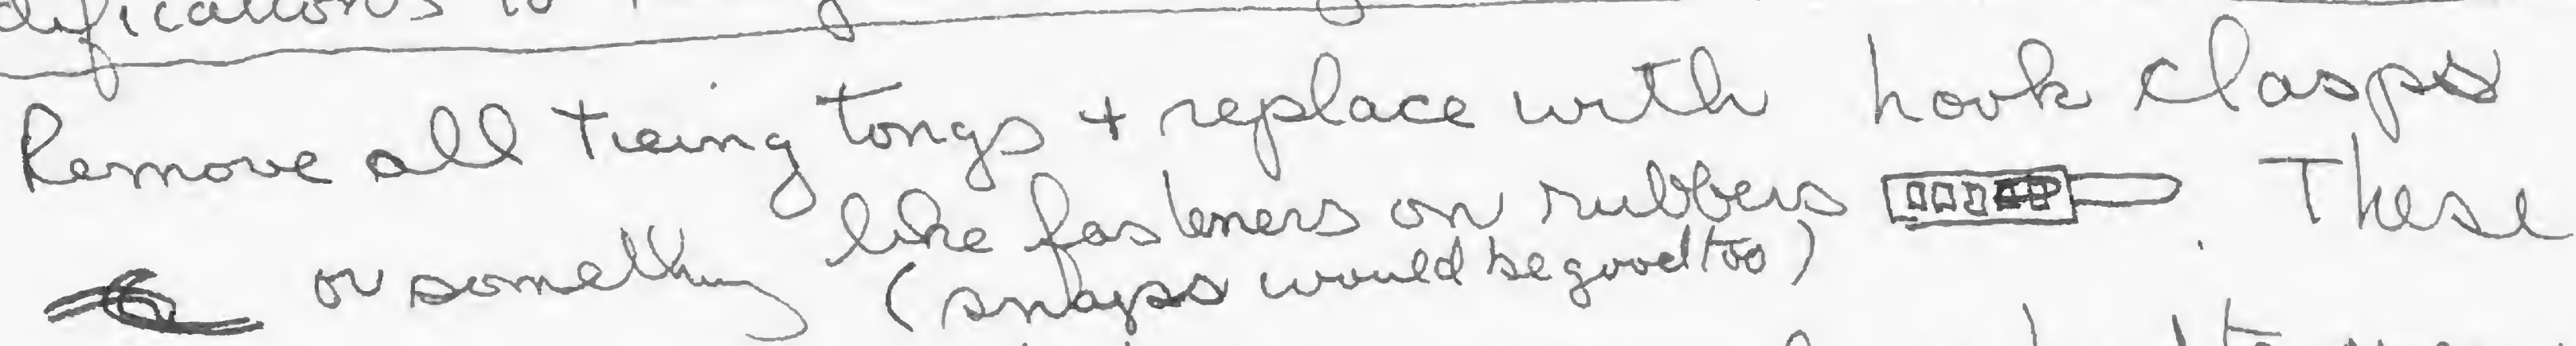 Remove all tieing tongs + replace with hook clasps
or something like fasteners on rubbers. These
(snaps would be good too)